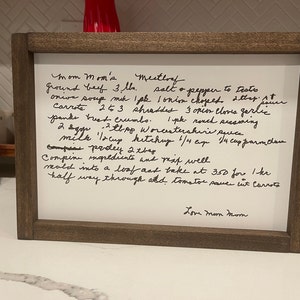 Mom Mom's Meatloaf
Ground beef 3 lbs. salt & pepper to taste
onion soup mix 1 pk 1 onion chopped 2 tbsp
Carrots 2 to 3 shredded 3 onion cloves garlic
panko bread crumbs. 1 pk meatl seasoning
2 eggs 2 tbsp Worcestershire sauce
milk 1/2 cup ketchup 1/4 cup 1/4 cup parmesan
parsley 2 tbsp
Compin ingredients and mix well
mold into a loaf and bake at 350 for 1 hr
half way through add tomatoe sauce w/ carrots
Love Mom Mom